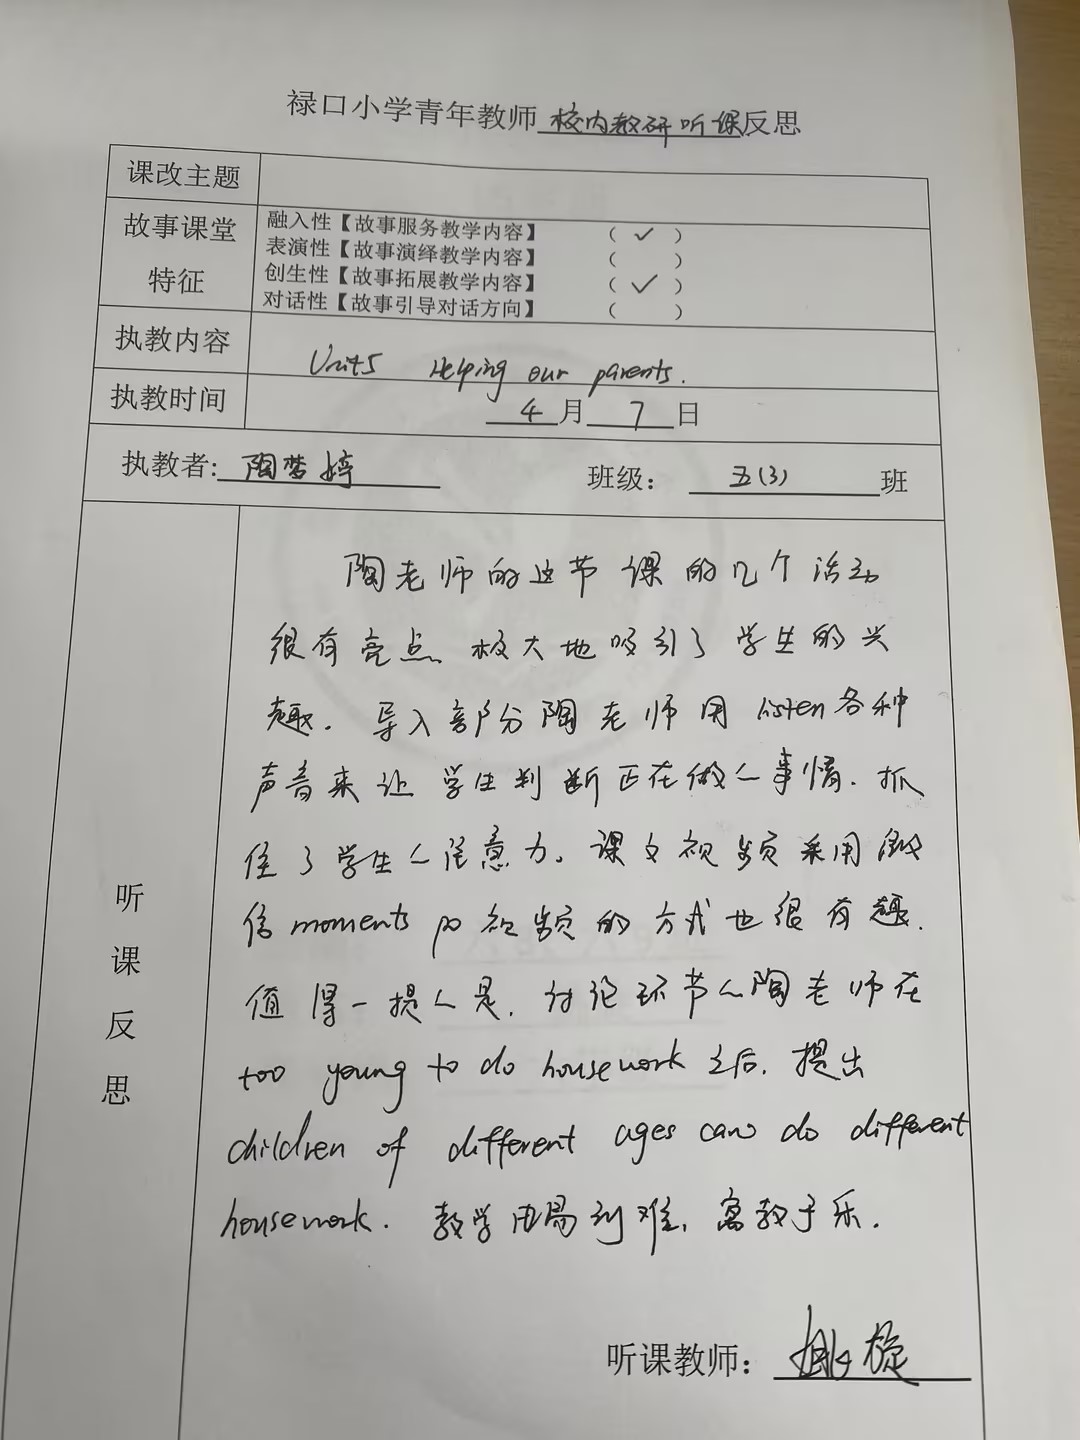 禄口小学青年教师校内教研听课反思
课改主题
故事课堂
特征
融入性【故事服务教学内容】 ( ✓ )
表演性【故事演绎教学内容】 ( )
创生性【故事拓展教学内容】 ( ✓ )
对话性【故事引导对话方向】 ( )
执教内容 Unit5 Helping our parents.
执教时间 4月7日
执教者: 陶梦婷 班级: 五(3)班
听课反思
陶老师的这节课的几个活动
很有亮点 极大地吸引了学生的兴
趣. 导入部分陶老师用listen各种
声音来让学生判断正在做的事情. 抓
住了学生的注意力. 课文视频采用微
信moments 内视频的方式也很有趣.
值得一提的是. 讨论环节的陶老师在
too young to do housework 之后. 提出
children of different ages can do different
housework. 教学由易到难, 寓教于乐.
听课教师: 姚旋